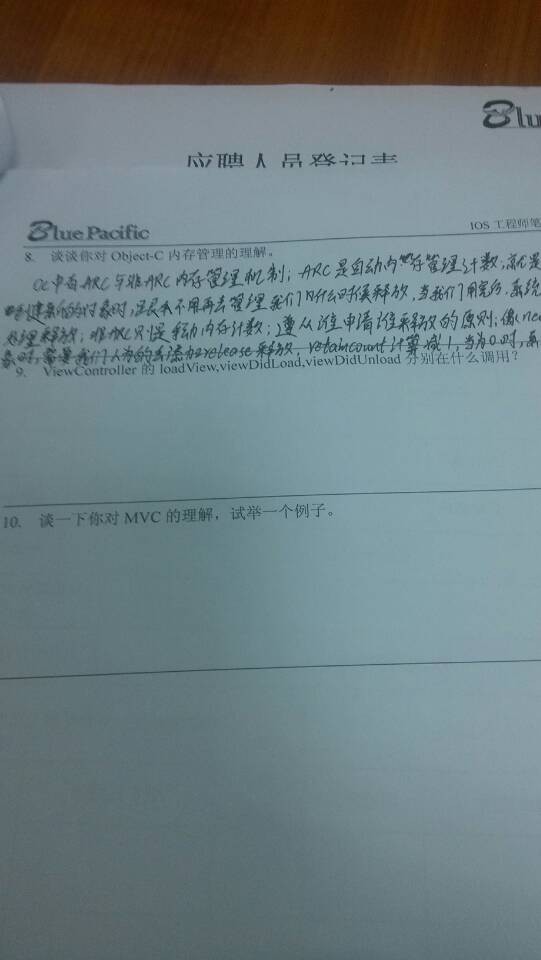 Blu
应聘人员登记表
Blue Pacific
IOS 工程师笔
8. 谈谈你对 Object-C 内存管理的理解。
OC中有ARC与非ARC内存管理机制；ARC是自动内存管理计数，就是
创建新的对象时，不用再去管理我们什么时候释放，当我们用完后，系统
处理释放；非ARC则是手动内存计数；遵从谁申请谁来释放的原则；像new
象时，需要我们人为的去添加release来释放，retaincount计算减1，当为0时，系
9. ViewController 的 loadView,viewDidLoad,viewDidUnload 分别在什么调用？
10. 谈一下你对 MVC 的理解，试举一个例子。